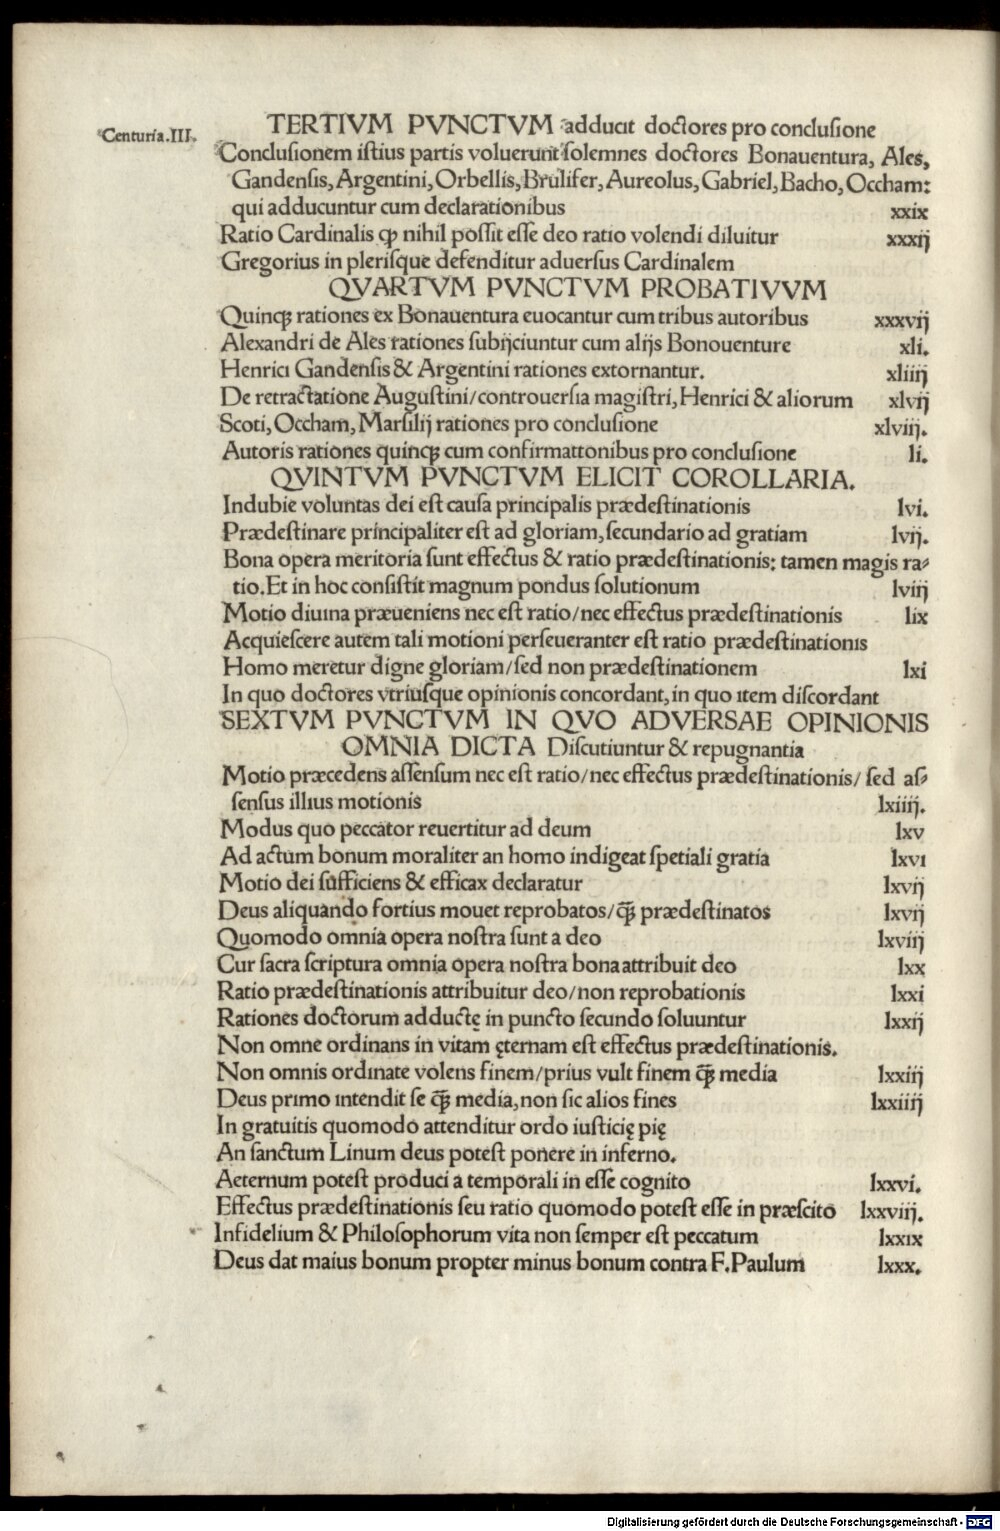 Centuria.III.
TERTIVM PVNCTVM adducit doctores pro conclusione
Conclusionem istius partis voluerunt solemnes doctores Bonauentura, Ales,
Gandensis, Argentini, Orbellis, Brulifer, Aureolus, Gabriel, Bacho, Occham:
qui adducuntur cum declarationibus xxix
Ratio Cardinalis ꝙ nihil possit esse deo ratio volendi diluitur xxxij
Gregorius in plerisque defenditur aduersus Cardinalem
QVARTVM PVNCTVM PROBATIVVM
Quinqꝫ rationes ex Bonauentura euocantur cum tribus autoribus xxxvij
Alexandri de Ales rationes subijciuntur cum alijs Bonouenture xli.
Henrici Gandensis & Argentini rationes extornantur. xliiij
De retractatione Augustini/controuersia magistri, Henrici & aliorum xlvij
Scoti, Occham, Marsilij rationes pro conclusione xlviij.
Autoris rationes quinqꝫ cum confirmattonibus pro conclusione li.
QVINTVM PVNCTVM ELICIT COROLLARIA.
Indubie voluntas dei est causa principalis prædestinationis lvi.
Prædestinare principaliter est ad gloriam, secundario ad gratiam lvij.
Bona opera meritoria sunt effectus & ratio prædestinationis: tamen magis ra-
tio. Et in hoc consistit magnum pondus solutionum lviij
Motio diuina præueniens nec est ratio/nec effectus prædestinationis lix
Acquiescere autem tali motioni perseueranter est ratio prædestinationis
Homo meretur digne gloriam/sed non prædestinationem lxi
In quo doctores vtriusque opinionis concordant, in quo item discordant
SEXTVM PVNCTVM IN QVO ADVERSAE OPINIONIS
OMNIA DICTA Discutiuntur & repugnantia
Motio præcedens assensum nec est ratio/nec effectus prædestinationis/ sed as-
sensus illius motionis lxiiij.
Modus quo peccator reuertitur ad deum lxv
Ad actum bonum moraliter an homo indigeat spetiali gratia lxvi
Motio dei sufficiens & efficax declaratur lxvij
Deus aliquando fortius mouet reprobatos/ꝗ̃ꝫ prædestinatos lxvij
Quomodo omnia opera nostra sunt a deo lxviij
Cur sacra scriptura omnia opera nostra bona attribuit deo lxx
Ratio prædestinationis attribuitur deo/non reprobationis lxxi
Rationes doctorum adductę in puncto secundo soluuntur lxxij
Non omne ordinans in vitam ęternam est effectus prædestinationis.
Non omnis ordinate volens finem/prius vult finem ꝗ̃ꝫ media lxxiij
Deus primo intendit se ꝗ̃ꝫ media, non sic alios fines lxxiiij
In gratuitis quomodo attenditur ordo iusticię pię
An sanctum Linum deus potest ponere in inferno.
Aeternum potest produci a temporali in esse cognito lxxvi.
Effectus prædestinationis seu ratio quomodo potest esse in præscito lxxviij.
Infidelium & Philosophorum vita non semper est peccatum lxxix
Deus dat maius bonum propter minus bonum contra F. Paulum lxxx.
Digitalisierung gefördert durch die Deutsche Forschungsgemeinschaft - DFG